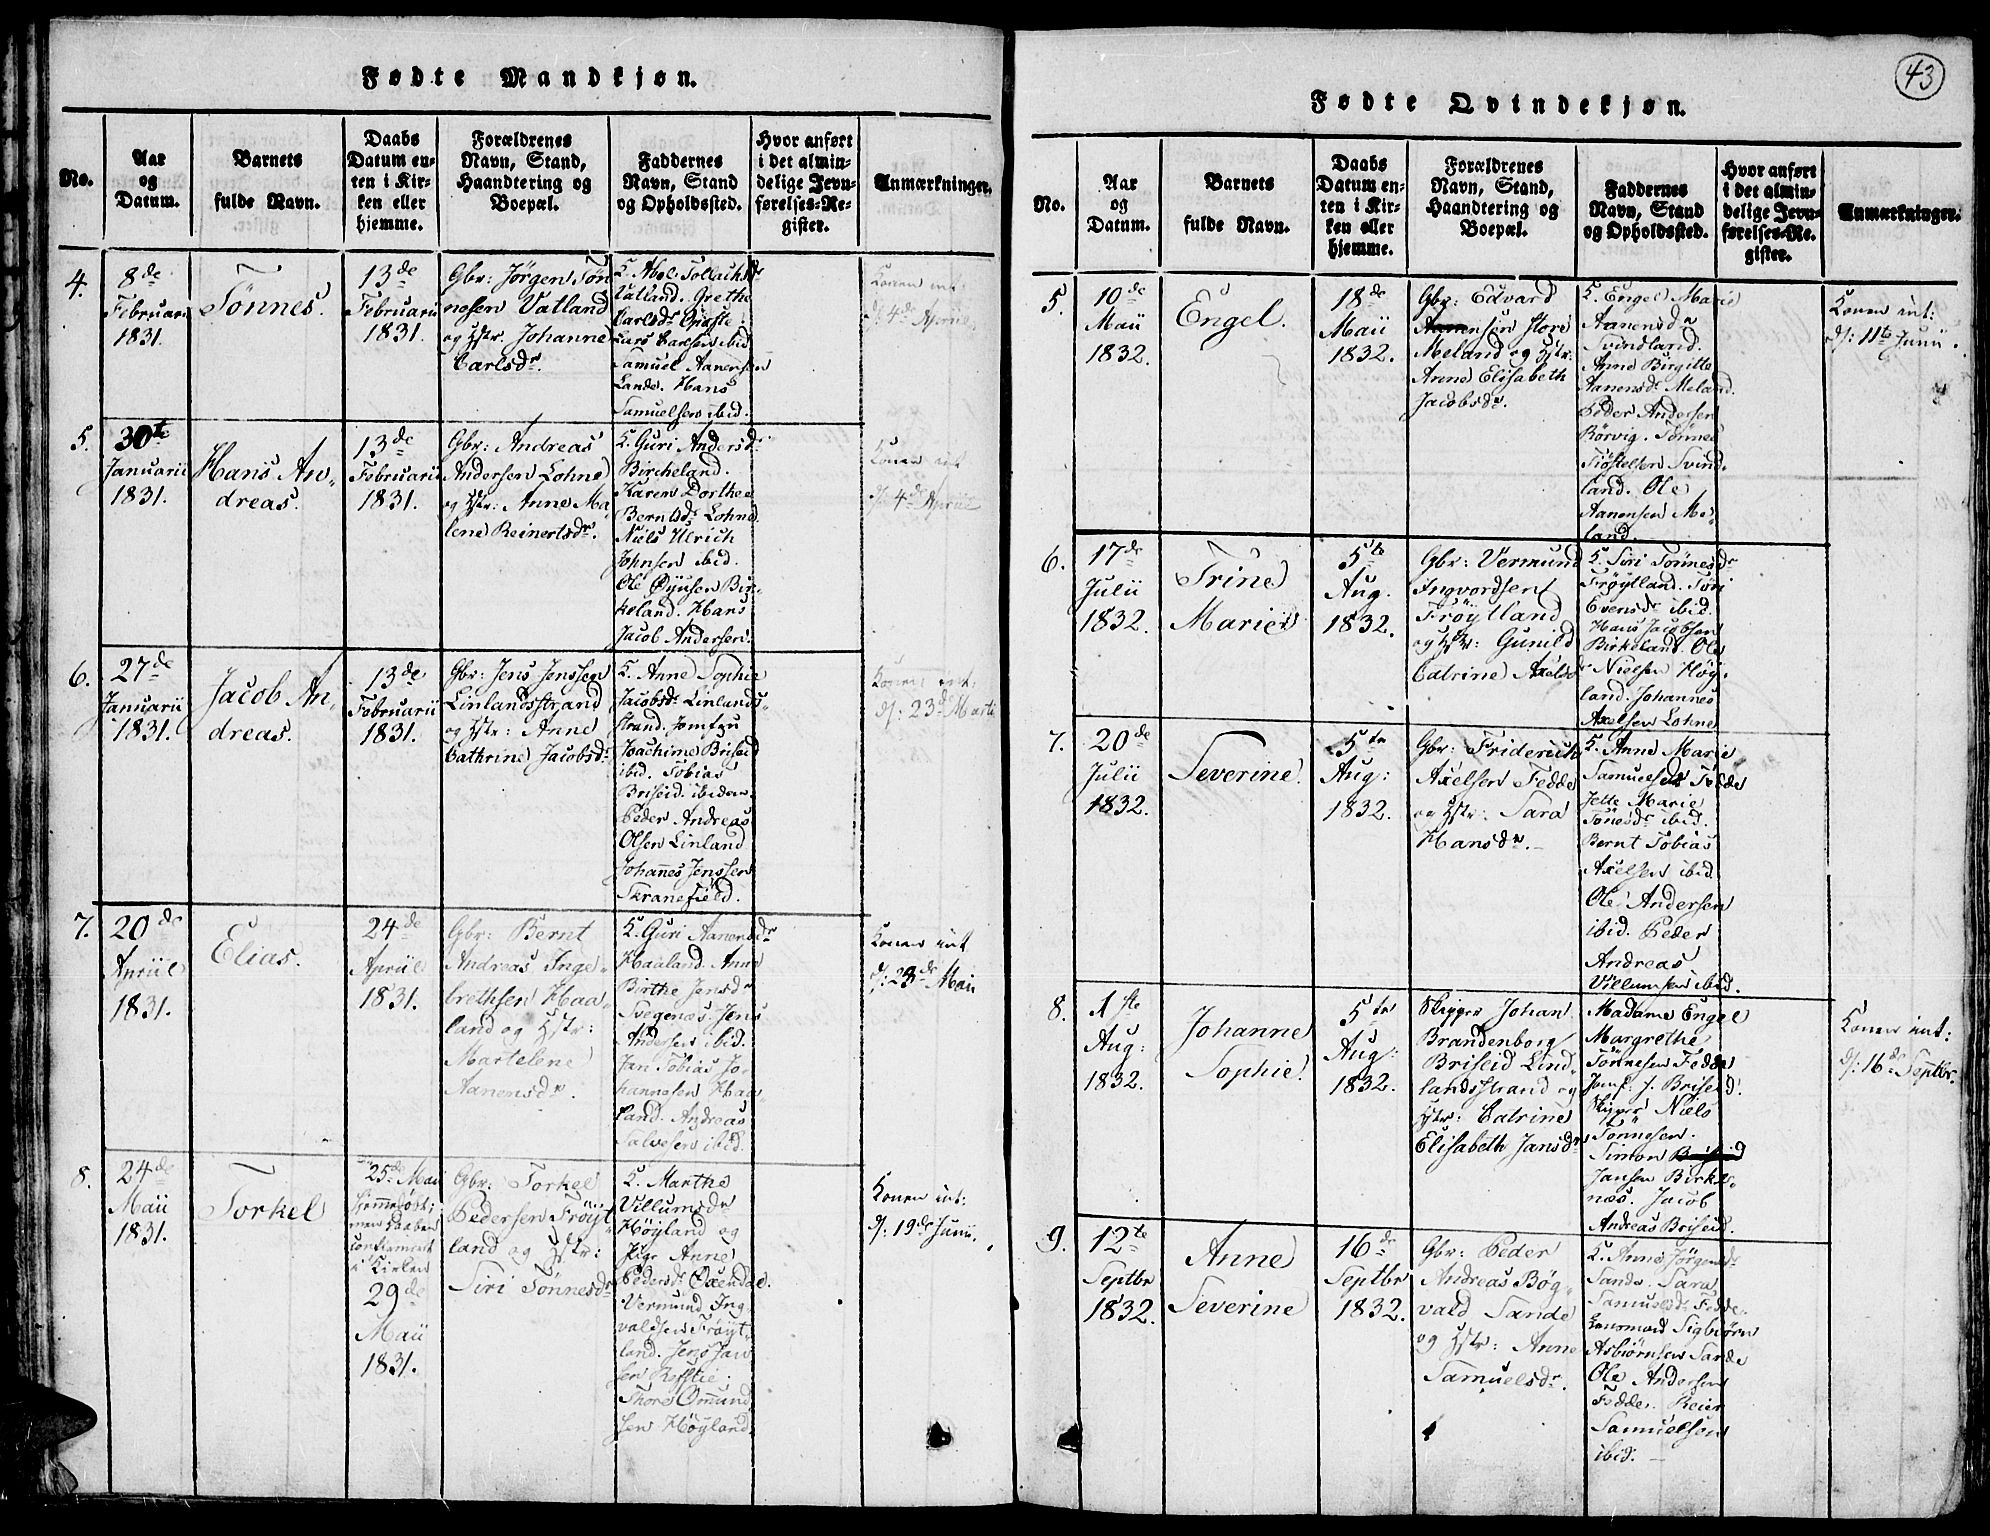 Fødte Mandkjøn.
No.
Aar
og
Datum.
Barnets
fulde Navn.
Daabs
Datum en-
ten i Kir-
ken eller
hjemme.
Forældrenes
Navn, Stand,
Haandtering og
Boepæl.
Faddernes
Navn, Stand
og Opholdssted.
Hvor anført
i det almin-
delige Jevn-
førelses-Re-
gister.
Anmærkninger.
4.
8de
Februarii
1831.
Tønnes.
13de
Februarii
1831.
Gbr: Jørgen Tøn
nesen Vatland
og Hstr. Johanne
Carlsdr.
K. Abel Tollachsdr
Vatland. Grethe
Carlsdr Giøste
Lars Carlsen ibid
Samuel Aanensen
Lande. Hans
Samuelsen ibid.
Konen int:
d/: 4de Apriil
5.
30te
Januarii
1831.
Hans An-
dreas.
13de
Februarii
1831.
Gbr: Andreas
Andersen Lohne
og Hstr: Anne Ma-
lene Reinertsdr.
K. Guri Andersdr
Bircheland.
Karen Dorthea
Berntsdr Lohne
Niels Ulrich
Johnsen ibid.
Ole Øyusen Bir-
keland. Hans
Jacob Andersen.
Konen int
d/ 4de Apriil
6.
27de
Januarii
1831.
Jacob An-
dreas.
13de
Februarii
1831.
Gbr: Jens Jenssen
Linlandsstrand
og Hstr: Anne
Cathrine Jacobsdr
K. Anne Sophie
Jacobsdr Linlands-
strand. Jomfru
Joachime Briseid
ibid. Tobias
Briseid. ibidem.
Peder Andreas
Olsen Linland
Johanes Jenssen
Skranefield.
Konen int:
d/: 23de Marti
7.
20de
Apriil
1831.
Elias.
24de
Apriil
1831.
Gbr: Bernt
Andreas Inge-
brethsen Haa-
land og Hstr:
Martelene
Aanensdr.
K. Guri Aanensdr
Haaland. Anne
Birthe Jensdr
Svegenæs. Jens
Andersen ibid.
Jan Tobias Jo-
hannesen Haa-
land. Andreas
Salvesen ibid.
Konen int
d/: 23de Maii
8.
24de
Maii
1831.
Torkel
25de Mai
hjemmedøbt;
men Daaben
confirmert
i Kirken
29de
Maii
1831.
Gbr: Torkel
Pedersen Frøyt-
land og Hstr:
Siri Tønnesdr
K. Marthe
Villumsdr
Høyland og
Pige Anne
Pedersdr Oxendal.
Vermund Ing
valdsen Frøyt-
land. Jens Jan
sen Refstie.
Thore Omund
sen Høyland
Konen int:
d/: 19de Junii.
43
Fødte Qvindekjøn.
No.
Aar
og
Datum.
Barnets
fulde Navn.
Daabs
Datum en-
ten i Kir-
ken eller
hjemme.
Forældrenes
Navn, Stand,
Haandtering og
Boepæl.
Faddernes
Navn, Stand
og Opholdssted.
Hvor anført
i det almin-
delige Jevn-
førelses-Re-
gister.
Anmærkninger.
5.
10de
Maii
1832.
Engel.
18de
Maii
1832.
Gbr: Edvard
Aanensen Store
Meland og Hstr:
Anne Elisabeth
Jacobsdr.
K. Engel Marie
Aanensdr
Svindland.
Anne Birgitte
Aanensdr Meland.
Peder Andersen
Rørvig. Tønnes
Tiøstelsen Svind-
land. Ole
Aanensen Me-
land.
Konen int:
d/: 11te Junii.
6.
17de
Julii
1832.
Trine
Marie
5te
Aug.
1832.
Gbr: Vermund
Ingvordsen
Frøytland
og Hstr: Gunild
Catrine Axelsdr
K. Siri Tønnesdr
Frøytland. Siri
Evensdr ibid.
Hans Jacobsen
Birkeland. Ole
Nielsen Høy-
land. Johannes
Axelsen Lohne
7.
20de
Julii
1832.
Severine.
5te
Aug:
1832.
Gbr: Friderich
Axelsen Fedde
og Hstr: Sara
Hansdr.
K. Anne Marie
Samuelsdr Fedde
Jette Marie
Tønesdr ibid.
Bernt Tobias
Axelsen ibid
Ole Andersen
ibid. Peder
Andreas
Villumsen ibid.
8.
1ste
Aug:
1832.
Johanne
Sophie.
5te
Aug:
1832.
Skipper Johan
Brandenborg
Briseid Lind-
landsstrand og
Hstr: Catrine
Elisabeth Jansdr
Madame Engel
Margrethe
Tønnesen Fedde
Jomf: J. Briseid.
Skipper Niels
Tønnesen.
Simon
Jansen Birke-
næs. Jacob
Andreas Briseid.
Konen int:
d/: 16de Septbr.
9.
12te
Septbr
1832.
Anne
Severine
16de
Septbr
1832.
Gbr: Peder
Andreas Bøg-
vald Sande
og Hstr: Anne
Samuelsdr.
K. Anne Jørgensdr
Sande. Sara
Samuelsdr Fedde.
Lensmand Sigbiørn
Asbiørnsen Sande
Ole Andersen
Fedde. Reier
Samuelsen
ibid.